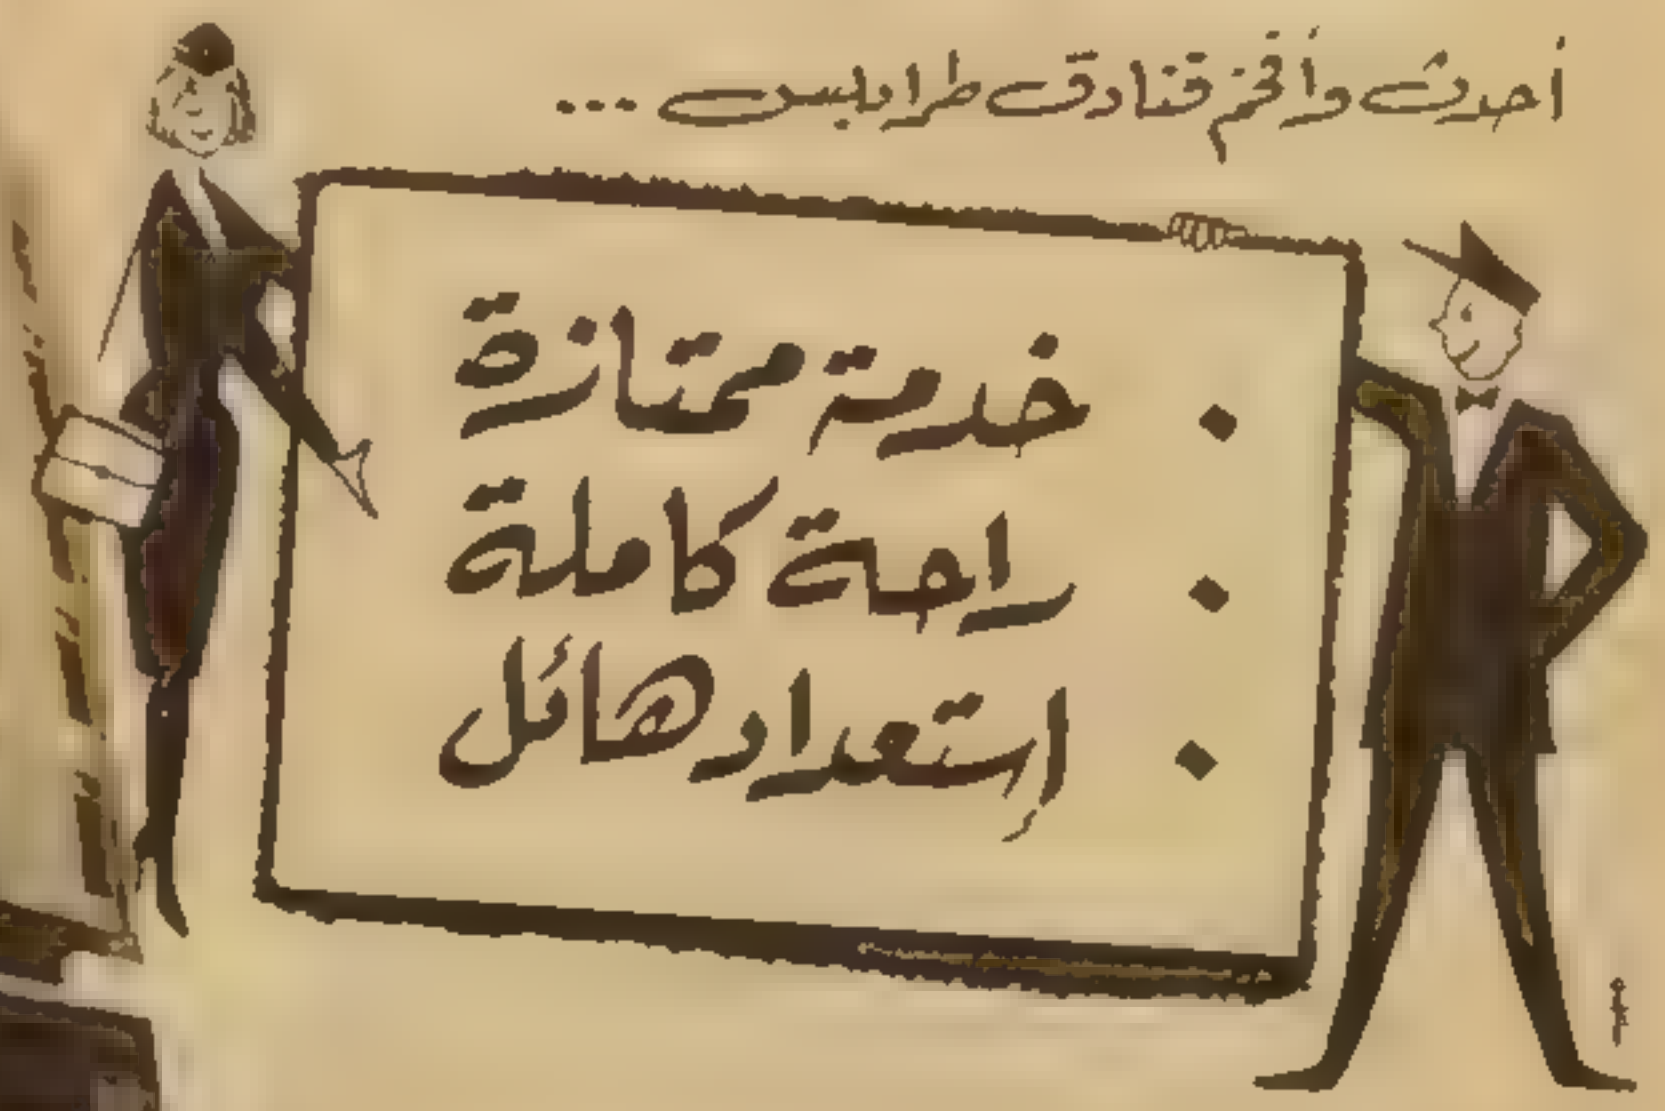 أحدث وأفخم قنادق طرابلس ...
• خدمة ممتازة
• راحة كاملة
• إستعداد هائل